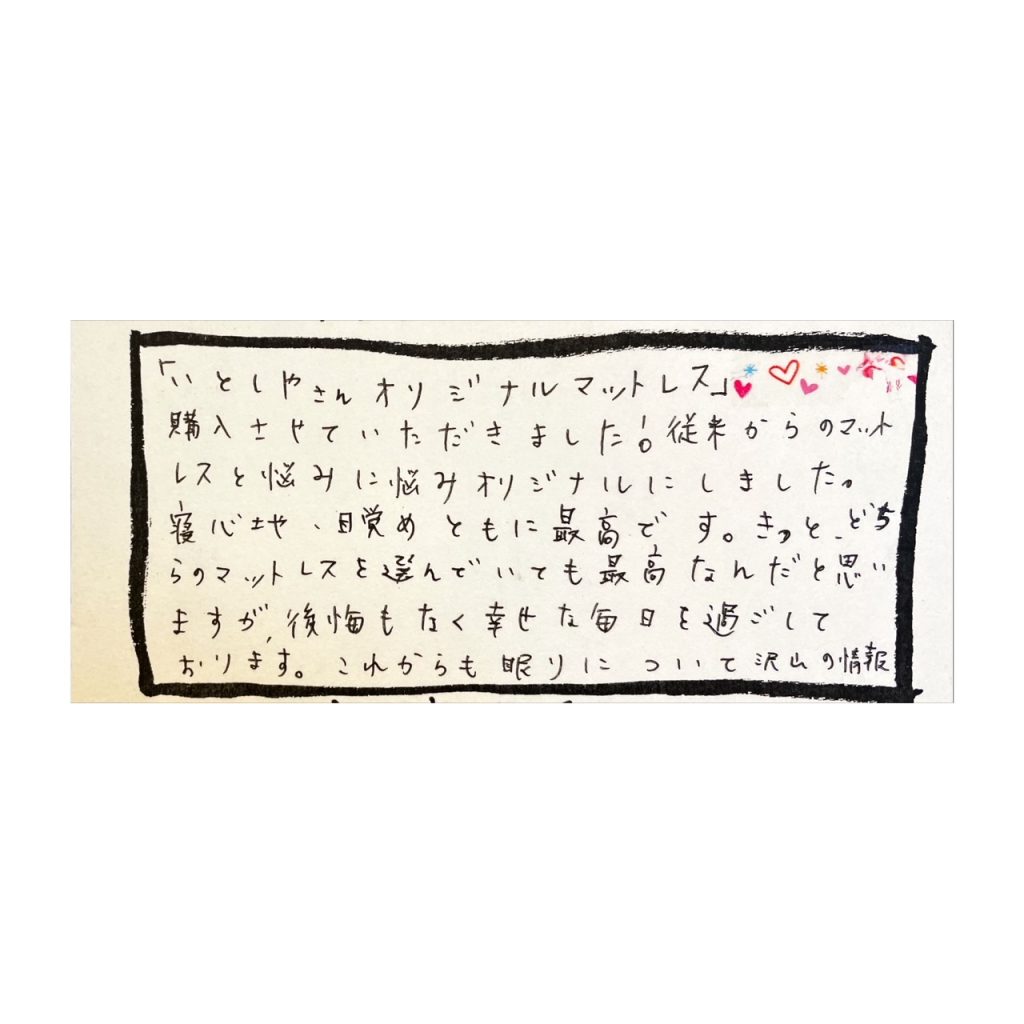 「いとしやさんオリジナルマットレス」
購入させていただきました!。従来からのマット
レスと悩みに悩みオリジナルにしました。
寝心地、目覚めともに最高です。きっと、どち
らのマットレスを選んでいても最高なんだと思い
ますが、後悔もなく幸せな毎日を過ごして
おります。これからも眠りについて沢山の情報